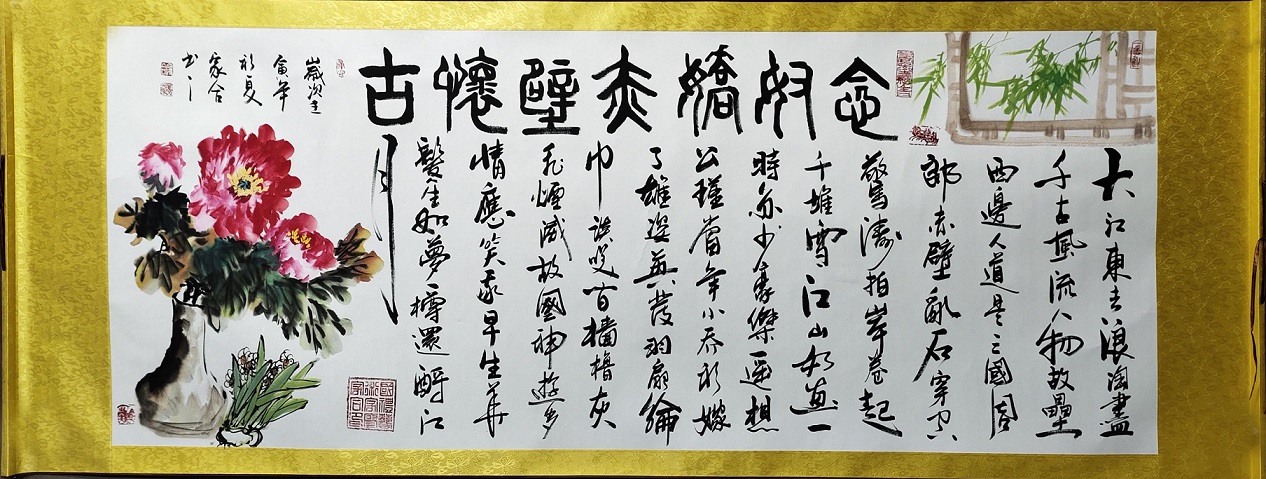 念奴嬌赤壁懷古
大江東去浪淘盡
千古風流人物故壘
西邊人道是三國周
郎赤壁亂石穿空
驚濤拍岸卷起
千堆雪江山如畫一
時多少豪傑遙想
公瑾當年小喬初嫁
了雄姿英發羽扇綸
巾談笑間檣櫓灰
飛煙滅故國神遊多
情應笑我早生華
髮生如夢樽還酹江
月
歲次壬
寅年
初夏
家合
书之